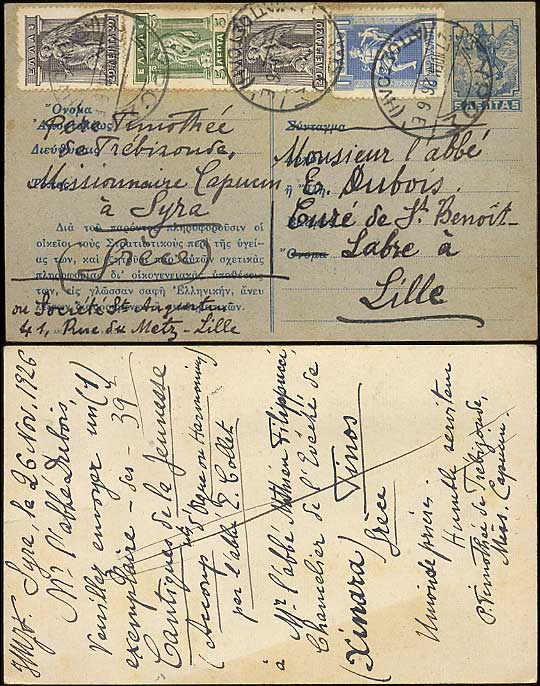 ΕΛΛΑΣ
5 ΛΕΠΤΑ 5
ΕΛΛΑΣ
20 ΛΕΠΤΑ 20
ΕΛΛΑΣ
5 ΛΕΠΤΑ 5
ΕΛΛΑΣ
20 ΛΕΠΤΑ 20
Ὄνομα
Ἀποστολέως
Διεύθυνσις
Père Timothée
de Trébizonde,
Missionnaire Capucin
à Syra
(Grèce)
Διὰ τοῦ παρόντος πληροφοροῦσιν οἱ
οἰκεῖοι τοὺς Στρατιωτικοὺς περὶ τῆς ὑγεί-
ας των, καὶ ζητοῦσι παρ' αὐτῶν σχετικὰς
πληροφορίας δι' οἰκογενειακὰς ὑποθέσεις
των, εἰς γλῶσσαν σαφῆ Ἑλληνικήν, ἄνευ
ou Société St Augustin
41, Rue du Metz - Lille
Σύνταγμα
ἢ
Ὄνομα
Monsieur l'abbé
Er. Dubois.
Curé de St Benoît-
Labre à
Lille
Syra, le 26 Nov. 1926
Mr l'abbé Dubois,
Veuillez envoyer un (1)
exemplaire - des - 39
Cantiques de la Jeunesse
(Accomp d'Orgue ou Harmonium)
par l'abbé E. Collet
à Mr l'abbé Mathieu Filippucci,
Chancelier de l'Evêché de
Tinos
(Xinara) Grèce
Union de prières.
Humble serviteur
P. Timothée de Trébizonde,
Miss. Capucin.